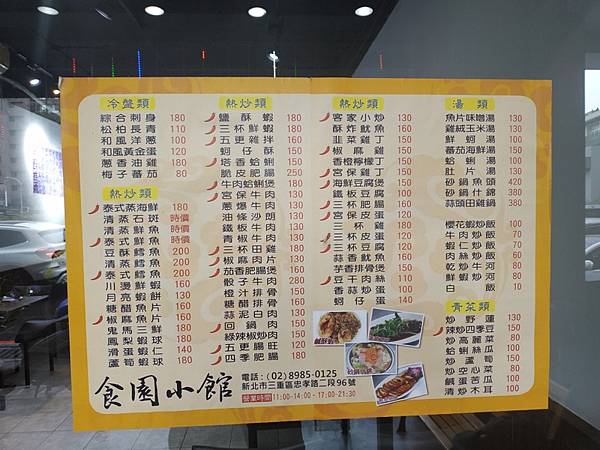 冷盤類
綜合刺身 180
松柏長青 110
和風洋蔥 100
和風黃金蛋 120
蔥香油雞 160
梅子蕃茄 80
熱炒類
泰式蒸海鮮 180
清蒸石斑 時價
清蒸鮮魚 時價
泰式鮮魚 時價
豆酥鱈魚 200
清蒸鱈魚 200
泰式鱈魚 200
川燙鮮蝦 160
月亮蝦餅 130
糖醋魚片 160
椒麻魚片 160
鬼馬三鮮 180
鳳梨蝦球 180
滑蛋蝦仁 140
蘆筍蝦球 180
熱炒類
鹽酥蝦 180
三杯鮮蝦 180
五更雞拌
蚵仔酥 150
塔香蛤蜊 150
脆皮肥腸 250
牛肉蛤蜊煲 180
宮保牛肉 150
蔥爆牛肉 150
油條沙朗 150
鐵板牛肉 150
青椒牛肉 150
三杯田雞 180
椒麻肉片 130
茄香肥腸煲 160
骰子牛肉 200
橙汁排骨 150
糖醋排骨 150
蒜泥白肉 130
回鍋肉 150
綠辣椒炒肉 150
五更腸旺 120
四季肥腸 180
熱炒類
客家小炒 130
酥炸魷魚 150
韭菜雞丁 150
椒麻雞 150
香橙檸檬丁 150
宮保雞丁 150
海鮮豆腐煲 150
鐵板豆腐 100
三杯肥腸 160
宮保皮蛋 120
三杯雞 180
三杯皮蛋 120
三杯豆腐 120
蒜香魷魚 150
芋香排骨煲 150
豆干肉絲 110
香蒜炒蛋 100
蚵仔蛋 140
湯類
魚片味噌湯 130
雞絨玉米湯 130
鮮蚵湯 130
蕃茄海鮮湯 150
蛤蜊湯 130
肚片湯 130
砂鍋魚頭 420
砂鍋什錦 380
蒜頭田雞鍋 380
櫻花蝦炒飯 100
牛肉炒飯 70
蝦仁炒飯 60
肉絲炒飯 60
乾炒牛河 80
鮮蝦炒河 80
白飯 10
青菜類
炒野蓮 130
辣炒四季豆 150
炒高麗菜 100
蛤蜊絲瓜 150
炒蘆筍 150
炒空心菜 80
鹹蛋苦瓜 100
清炒木耳 100
食園小館
電話:(02)8985-0125
新北市三重區忠孝路二段96號
營業時間 11:00-14:00、17:00-21:30